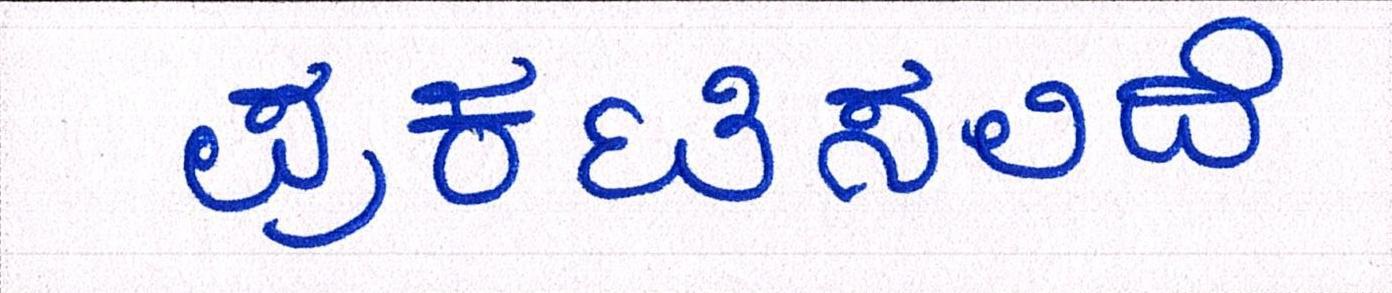 ಪ್ರಕಟಿಸಲಿದೆ